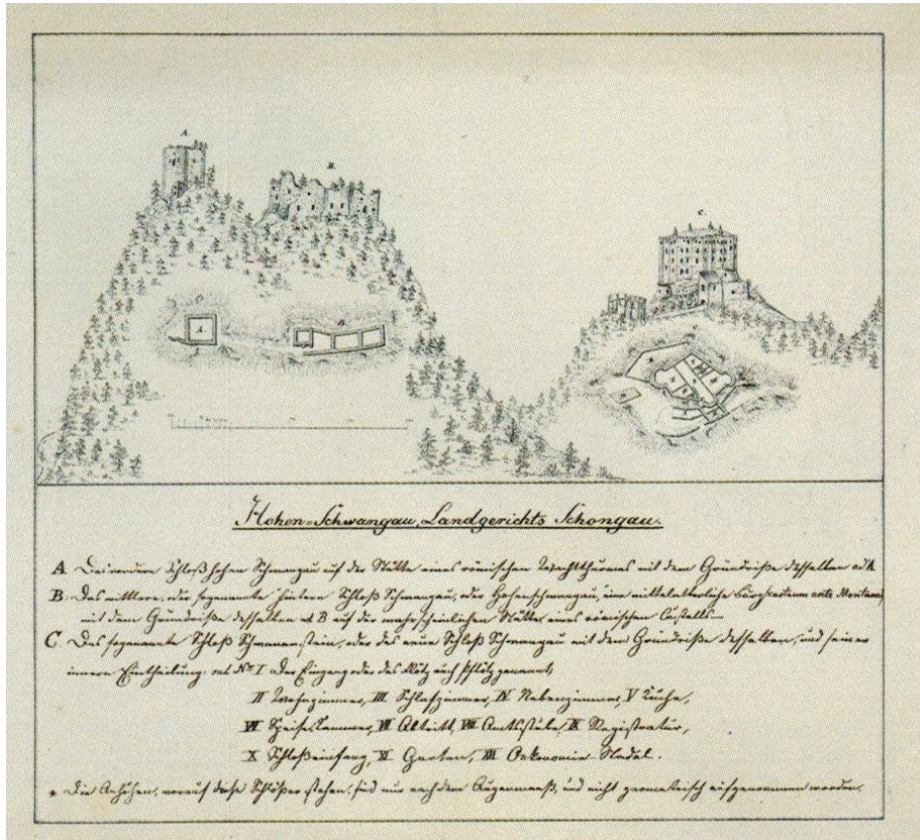 A.
B.
C.
A
B
Hohen-Schwangau, Landgerichts Schongau.
A Das vordere Schloß hohen Schwangau auf der Stätte eines römischen Wachtthurms mit dem Grundriße desselben ad A
B. Das mittlere, oder sogenannte hintere Schloß Schwangau, oder Hohenschwangau, eine mittelalterliche
mit dem Grundriße desselben ad B auf der wahrscheinlichen Stätte eines römischen Castells.
C. Das sogenannte Schloß Schwanenstein, oder das neue Schloß Schwangau mit dem Grundriße desselben, und seiner
innern Eintheilung: als No I der Eingang oder das auch genannt,
II Wohnzimmer, III Schlafzimmer, IV Nebenzimmer, V Küche,
VI Speis-Kammer, VII Abtritt, VIII Amtsstube, IX Registratur,
X Schloßeinfang, XI Garten, XII Oekonomie-Stadel.
* Die Anhöhen, worauf diese Schlößer stehen, sind nur nach dem Augenmaaß, und nicht geometrisch aufgenommen worden.